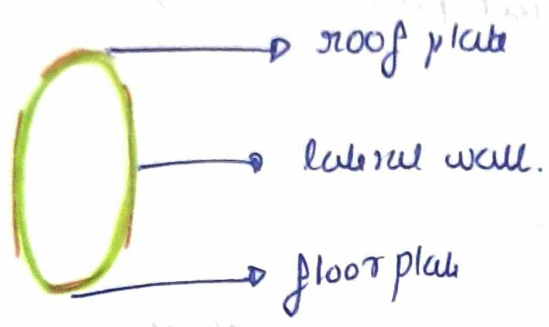 roof plate
lateral wall.
floor plate